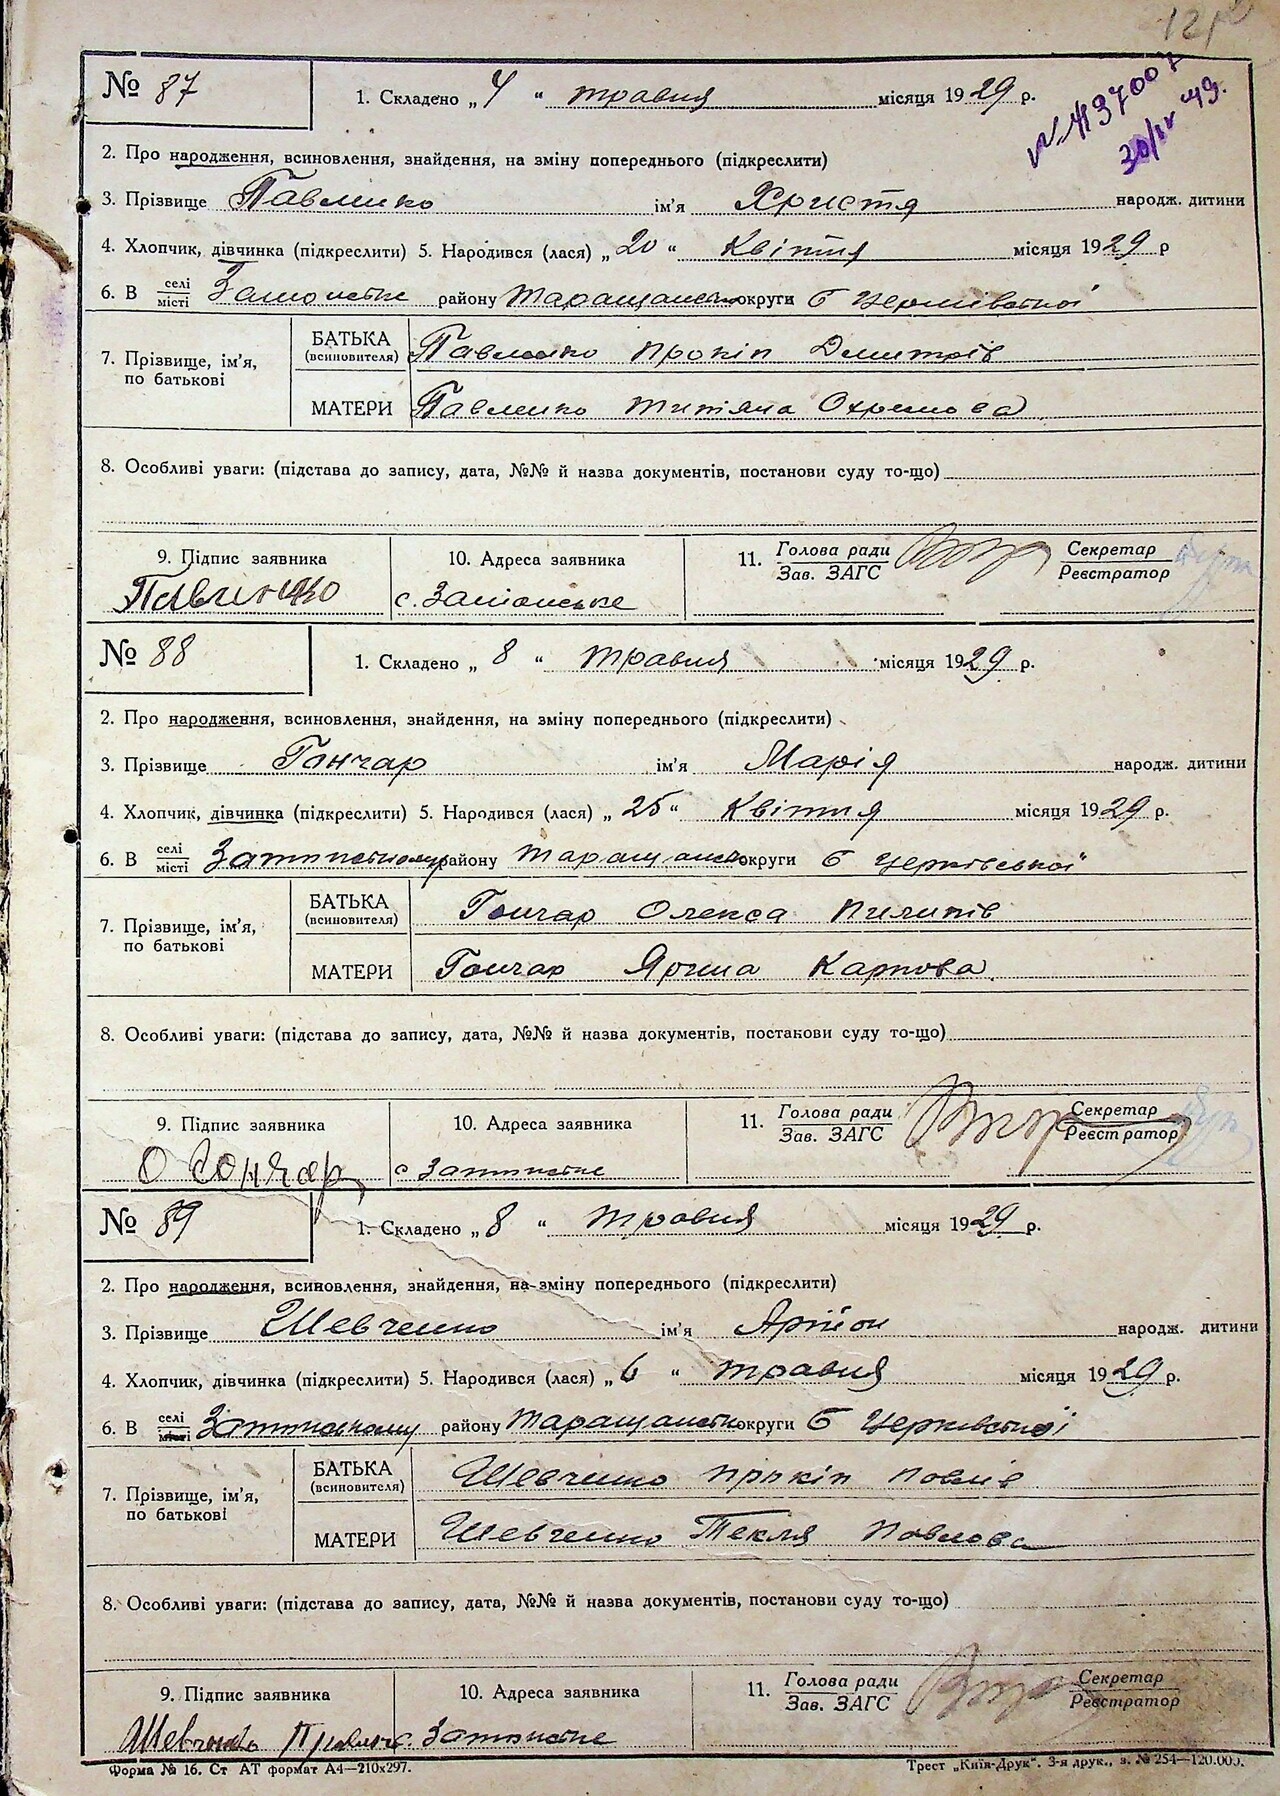 № 87
1. Складено „ 4 “ травня місяця 1929 р.
30/IV 49.
2. Про народження, всиновлення, знайдення, на зміну попереднього (підкреслити)
3. Прізвище Павленко ім'я Христя народж. дитини
4. Хлопчик, дівчинка (підкреслити) 5. Народився (лася) „ 20 “ Квітня місяця 1929 р
6. В селі/місті району Таращанськ округи Б Церківської
7. Прізвище, ім'я, по батькові
БАТЬКА (всиновителя) Павленко Прокіп Дмитрів
МАТЕРИ Павленко Титяна Охримова
8. Особливі уваги: (підстава до запису, дата, №№ й назва документів, постанови суду то-що)
9. Підпис заявника 10. Адреса заявника 11. Голова ради/Зав. ЗАГС Секретар/Реєстратор
с.
№ 88
1. Складено „ 8 “ травня місяця 1929 р.
2. Про народження, всиновлення, знайдення, на зміну попереднього (підкреслити)
3. Прізвище Гончар ім'я Марія народж. дитини
4. Хлопчик, дівчинка (підкреслити) 5. Народився (лася) „ 25 “ Квітня місяця 1929 р.
6. В селі/місті району Таращанськ округи Б Церківської
7. Прізвище, ім'я, по батькові
БАТЬКА (всиновителя) Гончар Олекса Пилипів
МАТЕРИ Гончар Ярина Карпова
8. Особливі уваги: (підстава до запису, дата, №№ й назва документів, постанови суду то-що)
9. Підпис заявника 10. Адреса заявника 11. Голова ради/Зав. ЗАГС Секретар/Реєстратор
О Гончар с
№ 89
1. Складено „ 8 “ травня місяця 1929 р.
2. Про народження, всиновлення, знайдення, на зміну попереднього (підкреслити)
3. Прізвище Шевченко ім'я народж. дитини
4. Хлопчик, дівчинка (підкреслити) 5. Народився (лася) „ 6 “ травня місяця 1929 р.
6. В селі/місті району Таращанськ округи Б Церківської
7. Прізвище, ім'я, по батькові
БАТЬКА (всиновителя) Шевченко Прокіп Павлів
МАТЕРИ Шевченко Текля Павлова
8. Особливі уваги: (підстава до запису, дата, №№ й назва документів, постанови суду то-що)
9. Підпис заявника 10. Адреса заявника 11. Голова ради/Зав. ЗАГС Секретар/Реєстратор
с.
Форма № 16. Ст АТ формат А4—210х297. Трест „Київ-Друк“. 3-я друк., з. № 254—120.000.